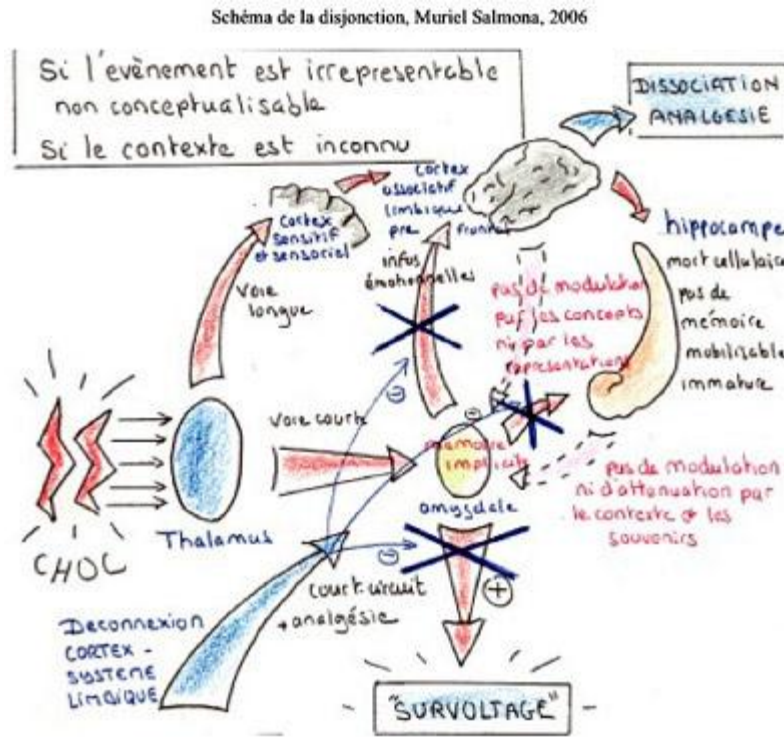 Schéma de la disjonction, Muriel Salmona, 2006
Si l'evènement est irrepresentable
non conceptualisable
Si le contexte est inconnu
DISSOCIATION
ANALGESIE
Cortex
sensitif
et sensoriel
Cortex
associatif
limbique
pre frontal
hippocampe
mort cellulaire
pas de
mémoire
mobilisable
immature
Voie
longue
infos
émotionnelles
pas de modulation
par les concepts
ni par les
representations
CHOC
Thalamus
Voie courte
mémoire
implicite
amygdale
pas de modulation
ni d'attenuation par
le contexte & les
souvenirs
Deconnexion
CORTEX -
SYSTEME
LIMBIQUE
court circuit
+ analgésie
+
"SURVOLTAGE"